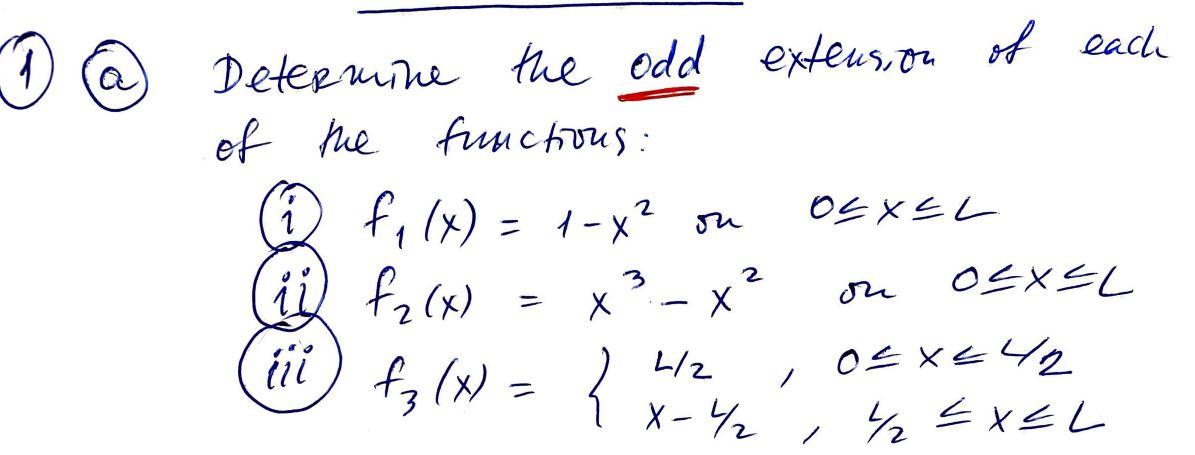 1 a Determine the odd extension of each
of the functions:
i f₁(x) = 1-x² on 0≤x≤L
ii f₂(x) = x³ - x² on 0≤x≤L
iii f₃(x) = { L/2 , 0≤x≤L/2
x-L/2 , L/2≤x≤L